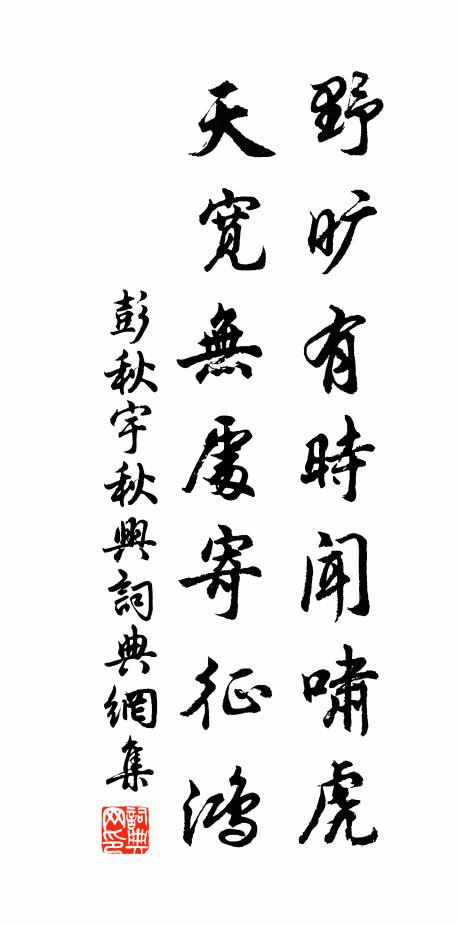 野旷有時闻嘯虎
天寬無處寄征鴻
彭秋宇秋興詞典網集
詞典网印